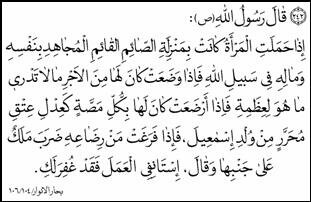 ﴿٢٤٢﴾ قَالَ رَسُولُ اللهِ (ص):
إِذَا حَمَلَتِ الْمَرْأَةُ كَانَتْ بِمَنْزِلَةِ الصَّائِمِ الْقَائِمِ الْمُجَاهِدِ بِنَفْسِهِ
وَمَالِهِ فِي سَبِيلِ اللهِ فَإِذَا وَضَعَتْ كَانَ لَهَا مِنَ الْأَجْرِ مَا لَا تَدْرِي
مَا هُوَ لِعِظَمِهِ فَإِذَا أَرْضَعَتْ كَانَ لَهَا بِكُلِّ مَصَّةٍ كَعِدْلِ عِتْقِ
مُحَرَّرٍ مِنْ وُلْدِ إِسْمٰعِيلَ، فَإِذَا فَرَغَتْ مِنْ رَضَاعِهِ ضَرَبَ مَلَكٌ
عَلَى جَنْبِهَا وَقَالَ: إِسْتَانِفِي الْعَمَلَ فَقَدْ غُفِرَ لَكِ.
بحار الانوار/١٠٤/١٠٦